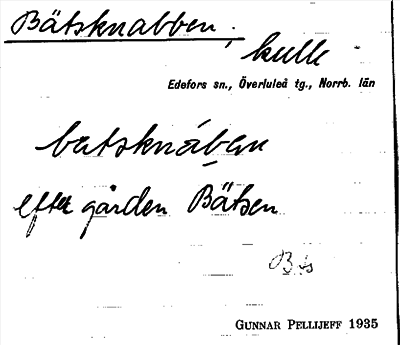 Bätsknabben, kulle
Edefors sn., Överluleå tg., Norrb. län
batsknában
efter gården Bätsen
GUNNAR PELLIJEFF 1935